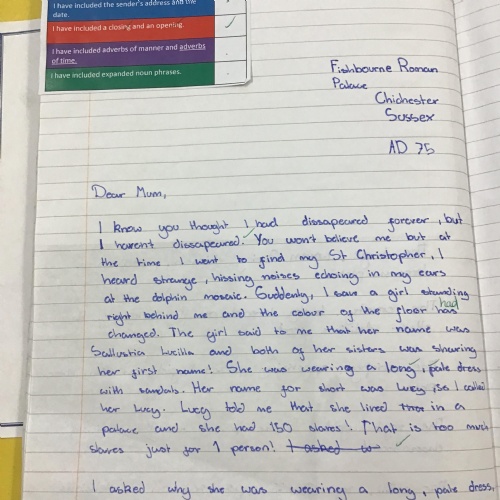 I have included the sender's address and the
date.
I have included a closing and an opening.
I have included adverbs of manner and adverbs
of time.
I have included expanded noun phrases.
Fishbourne Roman
Palace
Chichester
Sussex
AD 75
Dear Mum,
I know you thought I had dissapeared forever, but
I havent dissapeared. You won't believe me but at
the time I went to find my St Christopher, I
heard strange, hissing noises echoing in my ears
at the dolphin mosaic. Suddenly, I saw a girl standing
right behind me and the colour of the floor has
had
changed. The girl said to me that her name was
Sallustia Lucilla and both of her sisters was sharing
her first name! She was wearing a long, pale dress
with sandals. Her name for short was Lucy, so I called
her Lucy. Lucy told me that she lived in a
palace and she had 150 slaves! That is too much
slaves just for 1 person! I asked w
I asked why she was wearing a long, pale dress,